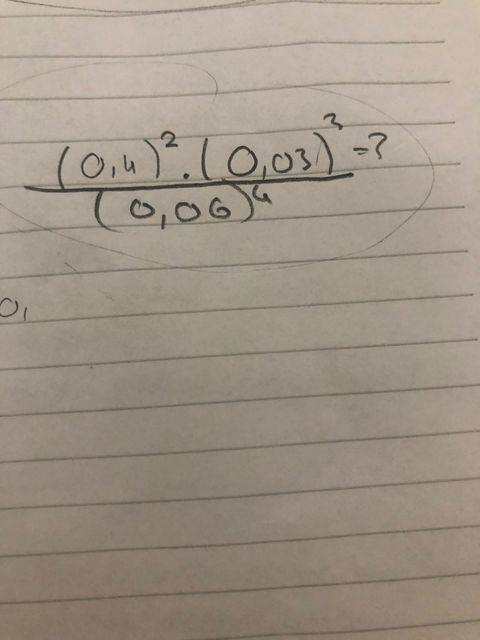 (0,4)².(0,03)³ =?
(0,06)⁴
0,